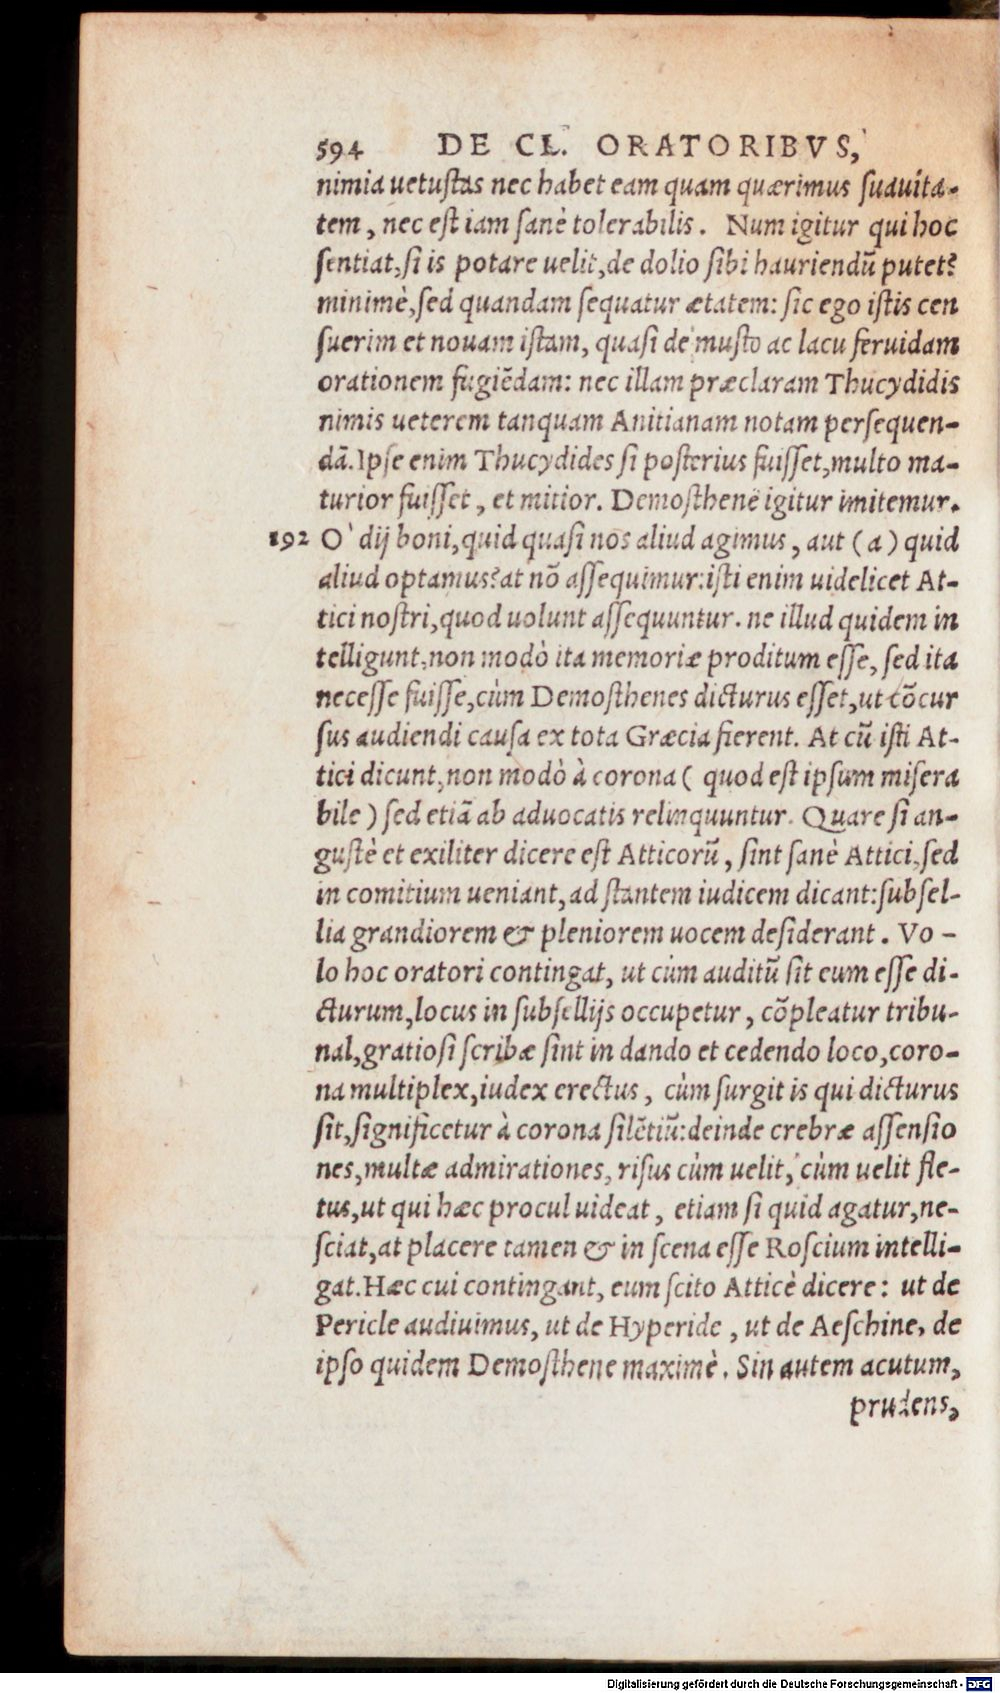 594 DE CL. ORATORIBVS,
nimia uetustas nec habet eam quam quærimus suauita-
tem, nec est iam sanè tolerabilis. Num igitur qui hoc
sentiat, si is potare uelit, de dolio sibi hauriendũ putet?
minimè, sed quandam sequatur ætatem: sic ego istis cen
suerim et nouam istam, quasi de musto ac lacu feruidam
orationem fugiẽdam: nec illam præclaram Thucydidis
nimis ueterem tanquam Anitianam notam persequen-
dã. Ipse enim Thucydides si posterius fuisset, multo ma-
turior fuisset, et mitior. Demosthenẽ igitur imitemur.
192 O' dij boni, quid quasi nos aliud agimus, aut (a) quid
aliud optamus? at nõ assequimur: isti enim uidelicet At-
tici nostri, quod uolunt assequuntur. ne illud quidem in
telligunt, non modò ita memoriæ proditum esse, sed ita
necesse fuisse, cùm Demosthenes dicturus esset, ut cõcur
sus audiendi causa ex tota Græcia fierent. At cũ isti At-
tici dicunt, non modò à corona ( quod est ipsum misera
bile ) sed etiã ab aduocatis relinquuntur. Quare si an-
gustè et exiliter dicere est Atticorũ, sint sanè Attici, sed
in comitium ueniant, ad stantem iudicem dicant: subsel-
lia grandiorem & pleniorem uocem desiderant. Vo-
lo hoc oratori contingat, ut cùm auditũ sit eum esse di-
cturum, locus in subsellijs occupetur, cõpleatur tribu-
nal, gratiosi scribæ sint in dando et cedendo loco, coro-
na multiplex, iudex erectus, cùm surgit is qui dicturus
sit, significetur à corona silẽtiũ: deinde crebræ assensio
nes, multæ admirationes, risus cùm uelit, cùm uelit fle-
tus, ut qui hæc procul uideat, etiam si quid agatur, ne-
sciat, at placere tamen & in scena esse Roscium intelli-
gat. Hæc cui contingant, eum scito Atticè dicere: ut de
Pericle audiuimus, ut de Hyperide, ut de Aeschine, de
ipso quidem Demosthene maximè. Sin autem acutum,
prudens,
Digitalisierung gefördert durch die Deutsche Forschungsgemeinschaft - DFG